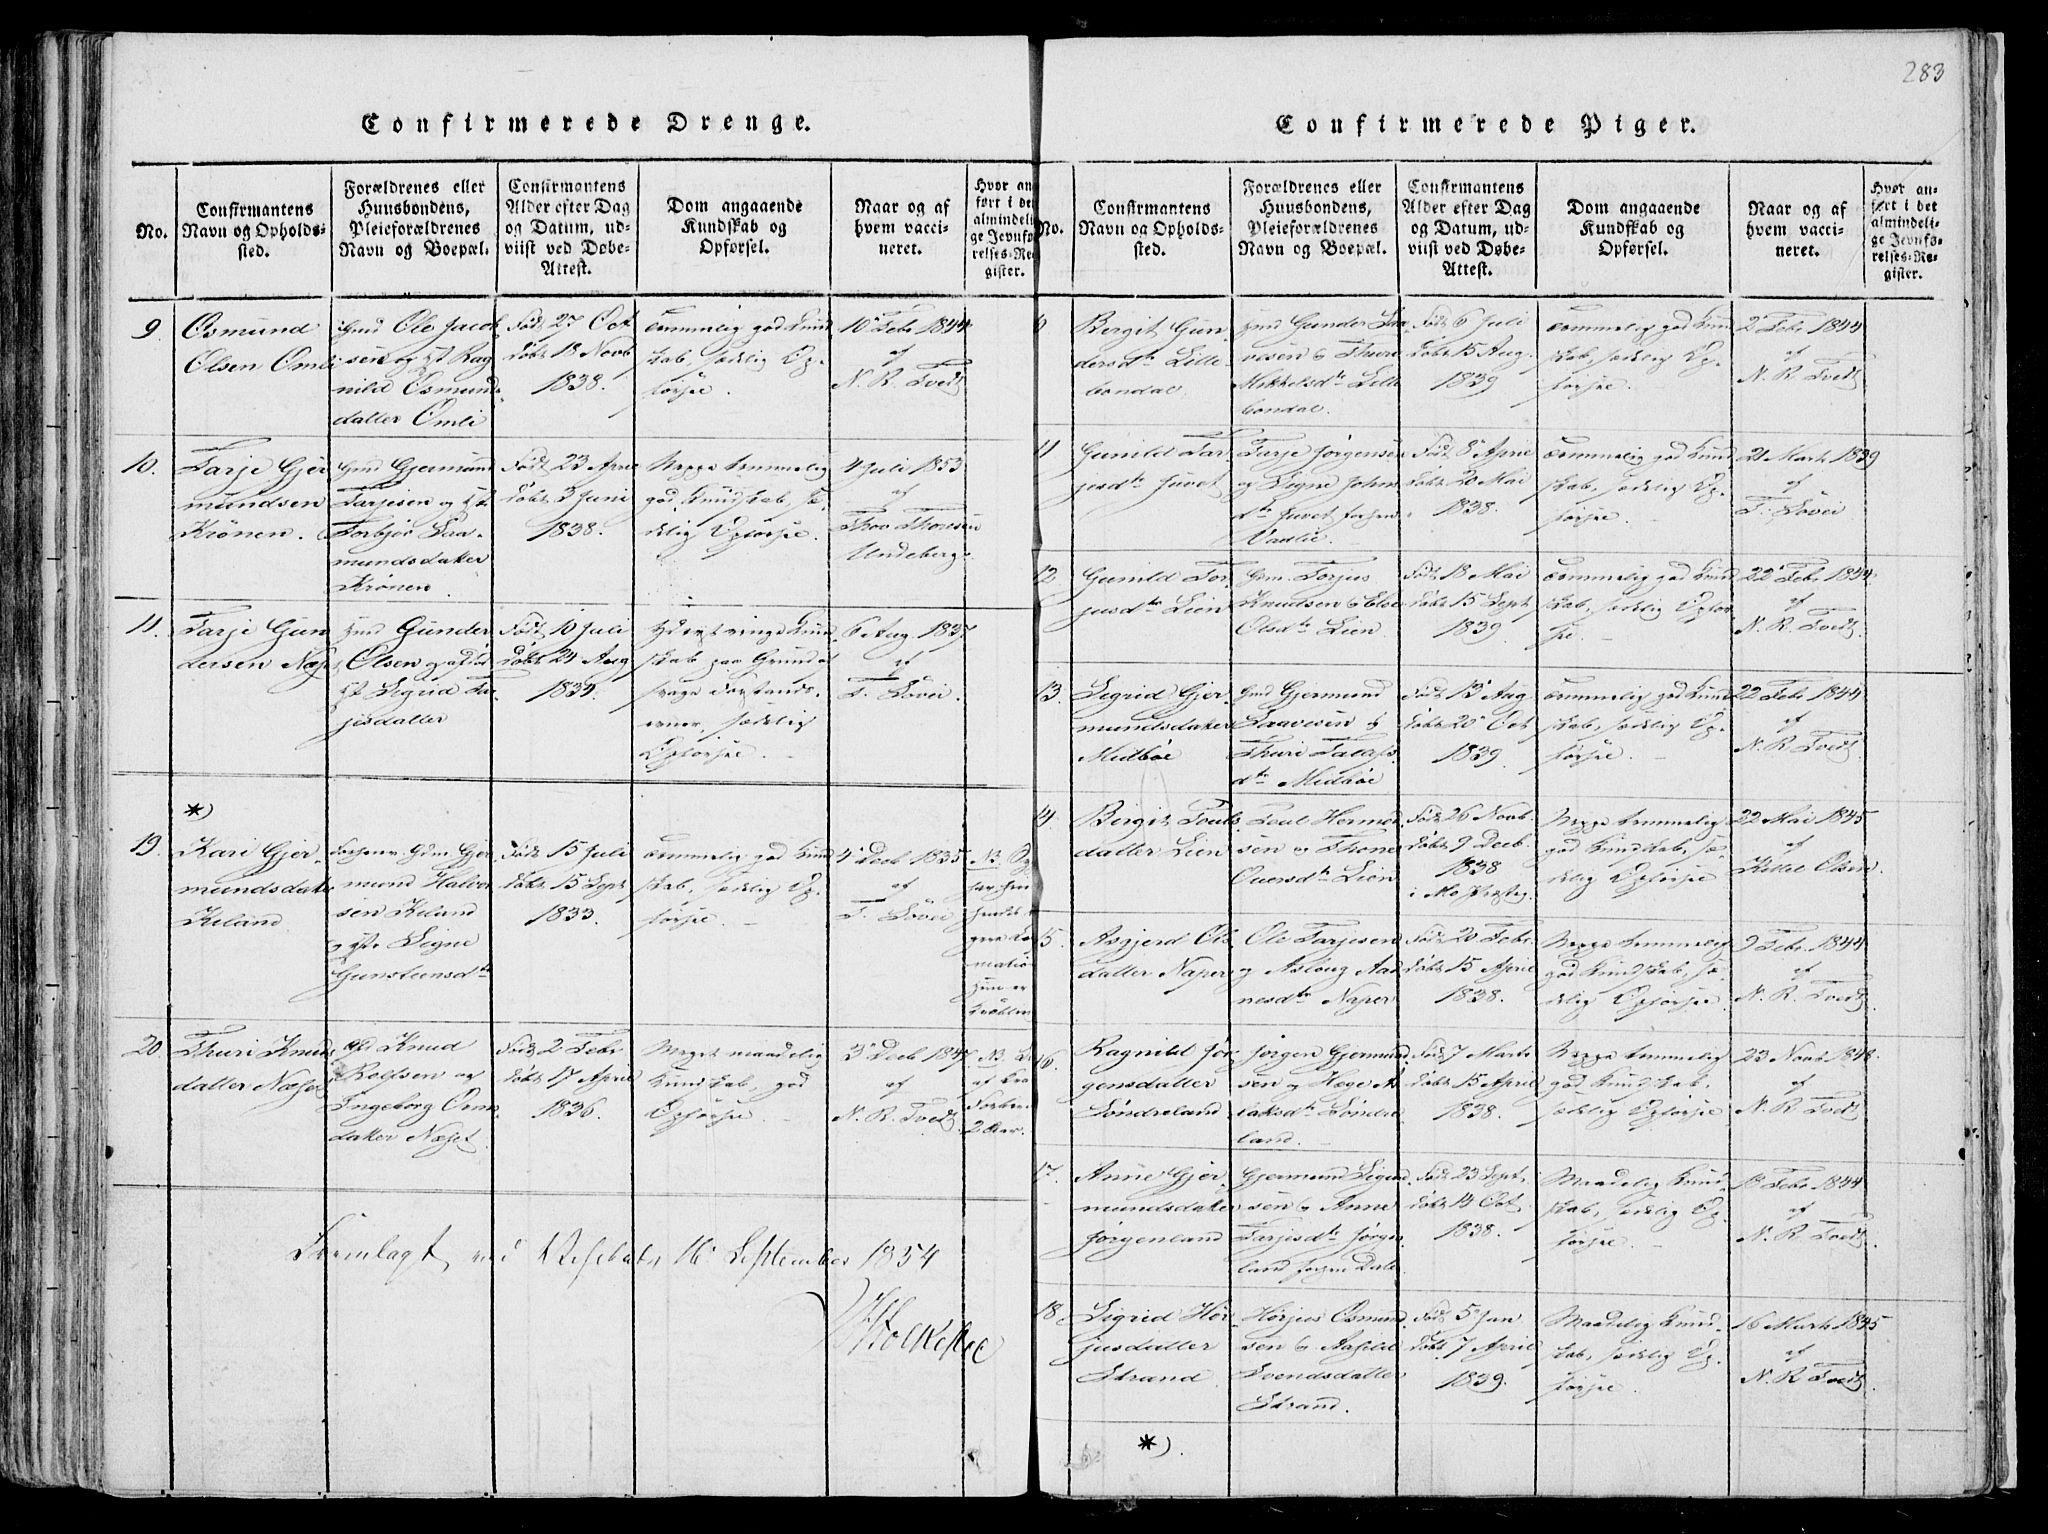 283
Confirmerede Drenge.
No.
Confirmantens
Navn og Opholds-
sted.
Forældrenes eller
Huusbondens,
Pleieforældrenes
Navn og Boepæl.
Confirmantens
Alder efter Dag
og Datum, ud-
viist ved Døbe-
Attest.
Dom angaaende
Kundskab og
Opførsel.
Naar og af
hvem vacci-
neret.
Hvor an
ført i det
almindeli
ge Jevnfø
relses-Re
gister.
9.
Osmund
Olsen Omli
Gmd Ole Jacob
sen og Ragnild Osmunds
datter Omli
Født 27 Oct
døbt 18 Novb
1838.
Temmelig god Kund
skab, sædelig Op-
førsel.
10 Febr 1844
af
N. R. Tvedt
10.
Tarje Gjer
mundsen
Krönen.
Gmd Gjermund
Tarjesen og
Torbjør Saa-
mundsdatter
Krönen.
Født 23 April
døbt 3 Juni
1838.
Neppe temmelig
god Kundskab, sæ-
delig Opførsel.
4 Juli 1853
af
Thov Thovsen
Undeberg.
11.
Tarje Gun
dersen Næs
Gunder
Olsen og
Sigrid Tar
jesdatter
Født 10 Juli
døbt 24 Aug
1834.
6 Aug. 1837
af
T. Lövei.
*)
19.
Kari Gjer-
mundsdatter
Kiland
Gjer
mund Halvor
sen Kiland
Signe
Gunsteinsdtr
Født 15 Juli
døbt 15 Sept
1833.
Temmelig god Kund
skab, sædelig Op-
førsel.
4 Decb 1835
af
T. Lövei
20
Thuri Knuds
datter Næset
Knud
Rolfsen og
Ingeborg Orm
datter Næset.
Født 2 Febr
døbt 17 April
1836.
Meget maadelig
Kundskab, god
Opførsel.
3 Decb 1847.
af
N. R. Tvedt
2 Aar.
Fremlagt ved 16 September 1854
Confirmerede Piger.
No.
Confirmantens
Navn og Opholds-
sted.
Forældrenes eller
Huusbondens,
Pleieforældrenes
Navn og Boepæl.
Confirmantens
Alder efter Dag
og Datum, ud-
viist ved Døbe-
Attest.
Dom angaaende
Kundskab og
Opførsel.
Naar og af
hvem vacci-
neret.
Hvor an-
ført i det
almindeli-
ge Jevnfø-
relses-Re-
gister.
Birgit Gun
dersdtr Lille-
bondal
Gmd Gunder Saa
vesen & Thuri
Mikkelsdtr Lille
bondal.
Født 6 Juli
døbt 15 Aug.
1839
Temmelig god Kund
skab, sædelig Op-
førsel.
2 Febr 1844
af
N. R. Tvedt
11
Gunild Tar
jesdtr Juvet
Tarje Jørgensen
og Signe John
dtr Juvet
Vaalie.
Født 8 April
døbt 20 Mai
1838.
Temmelig god Kund
skab, sædelig Op-
førsel.
21 Marts 1839
af
T. Lövei
12
Gunild Tor
jusdtr Lien
Gm. Torjus
Knudsen & Else
Olsdtr Lien.
Født 18 Mai
døbt 15 Sept
1839
Temmelig god Kund
skab, sædelig Opfør
sel.
22 Febr 1844
af
N. R. Tvedt.
13.
Sigrid Gjer
mundsdatter
Midböe
Gmd Gjermund
Saavesen &
Thuri
dtr Midböe
Født 13 Aug
døbt 20 Oct
1839.
Temmelig god Kund
skab, sædelig Op-
førsel.
22 Febr 1844
af
N. R. Tvedt
14
Birgit Touls
datter Lien
Toul Hermod
sen & Thone
Ouersdtr Lien
Født 26 Novb
døbt 9 Decb.
1838
i Mo Præsteg.
Neppe temmelig
god Kundskab, sæ-
delig Opførsel
22 Mai 1845
af
Kittel Olsen
15.
Asgjerd Ols
datter Naper
Ole Tarjesen
og Aslaug Aad
nesdtr Naper
Født 20 Febr.
døbt 15 April
1838.
Neppe temmelig
god Kundskab, sæ-
delig Opførsel
9 Febr. 1844
af
N. R. Tvedt
16.
Ragnild Jør
gensdatter
Söndreland
Jörgen Gjermund
sen og Hæge As
laksdtr Söndre
land.
Født 7 Marts
døbt 15 April
1838.
Neppe temmelig
god Kundskab,
sædelig Opførsel
23 Novb 1848.
af
N. R. Tvedt
17.
Anne Gjer-
mundsdatter
Jörgenland
Gjermund Sigurd
sen & Anne
Tarjesdtr Jörgen
land
Født 23 Sept.
døbt 14 Oct
1838.
Maadelig Kund-
skab, sædelig Op-
førsel.
18 Febr 1844
af
N. R. Tvedt.
18
Sigrid Hör-
jusdatter
Strand
Hörjus Osmund
sen & Aasild
Svendsdatter
Strand.
Født 5 Jan
døbt 7 April
1839.
Maadelig Kund-
skab, sædelig Op-
førsel.
16 Marts 1845
af
N. R. Tvedt
*).